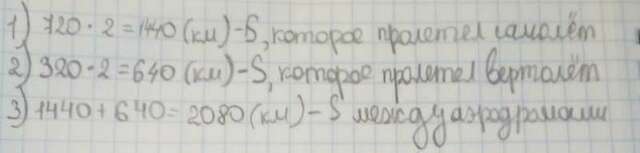 1) 720 · 2 = 1440 (км) - S, которое пролетел самолёт
2) 320 · 2 = 640 (км) - S, которое пролетел вертолёт
3) 1440 + 640 = 2080 (км) - S между аэродромами